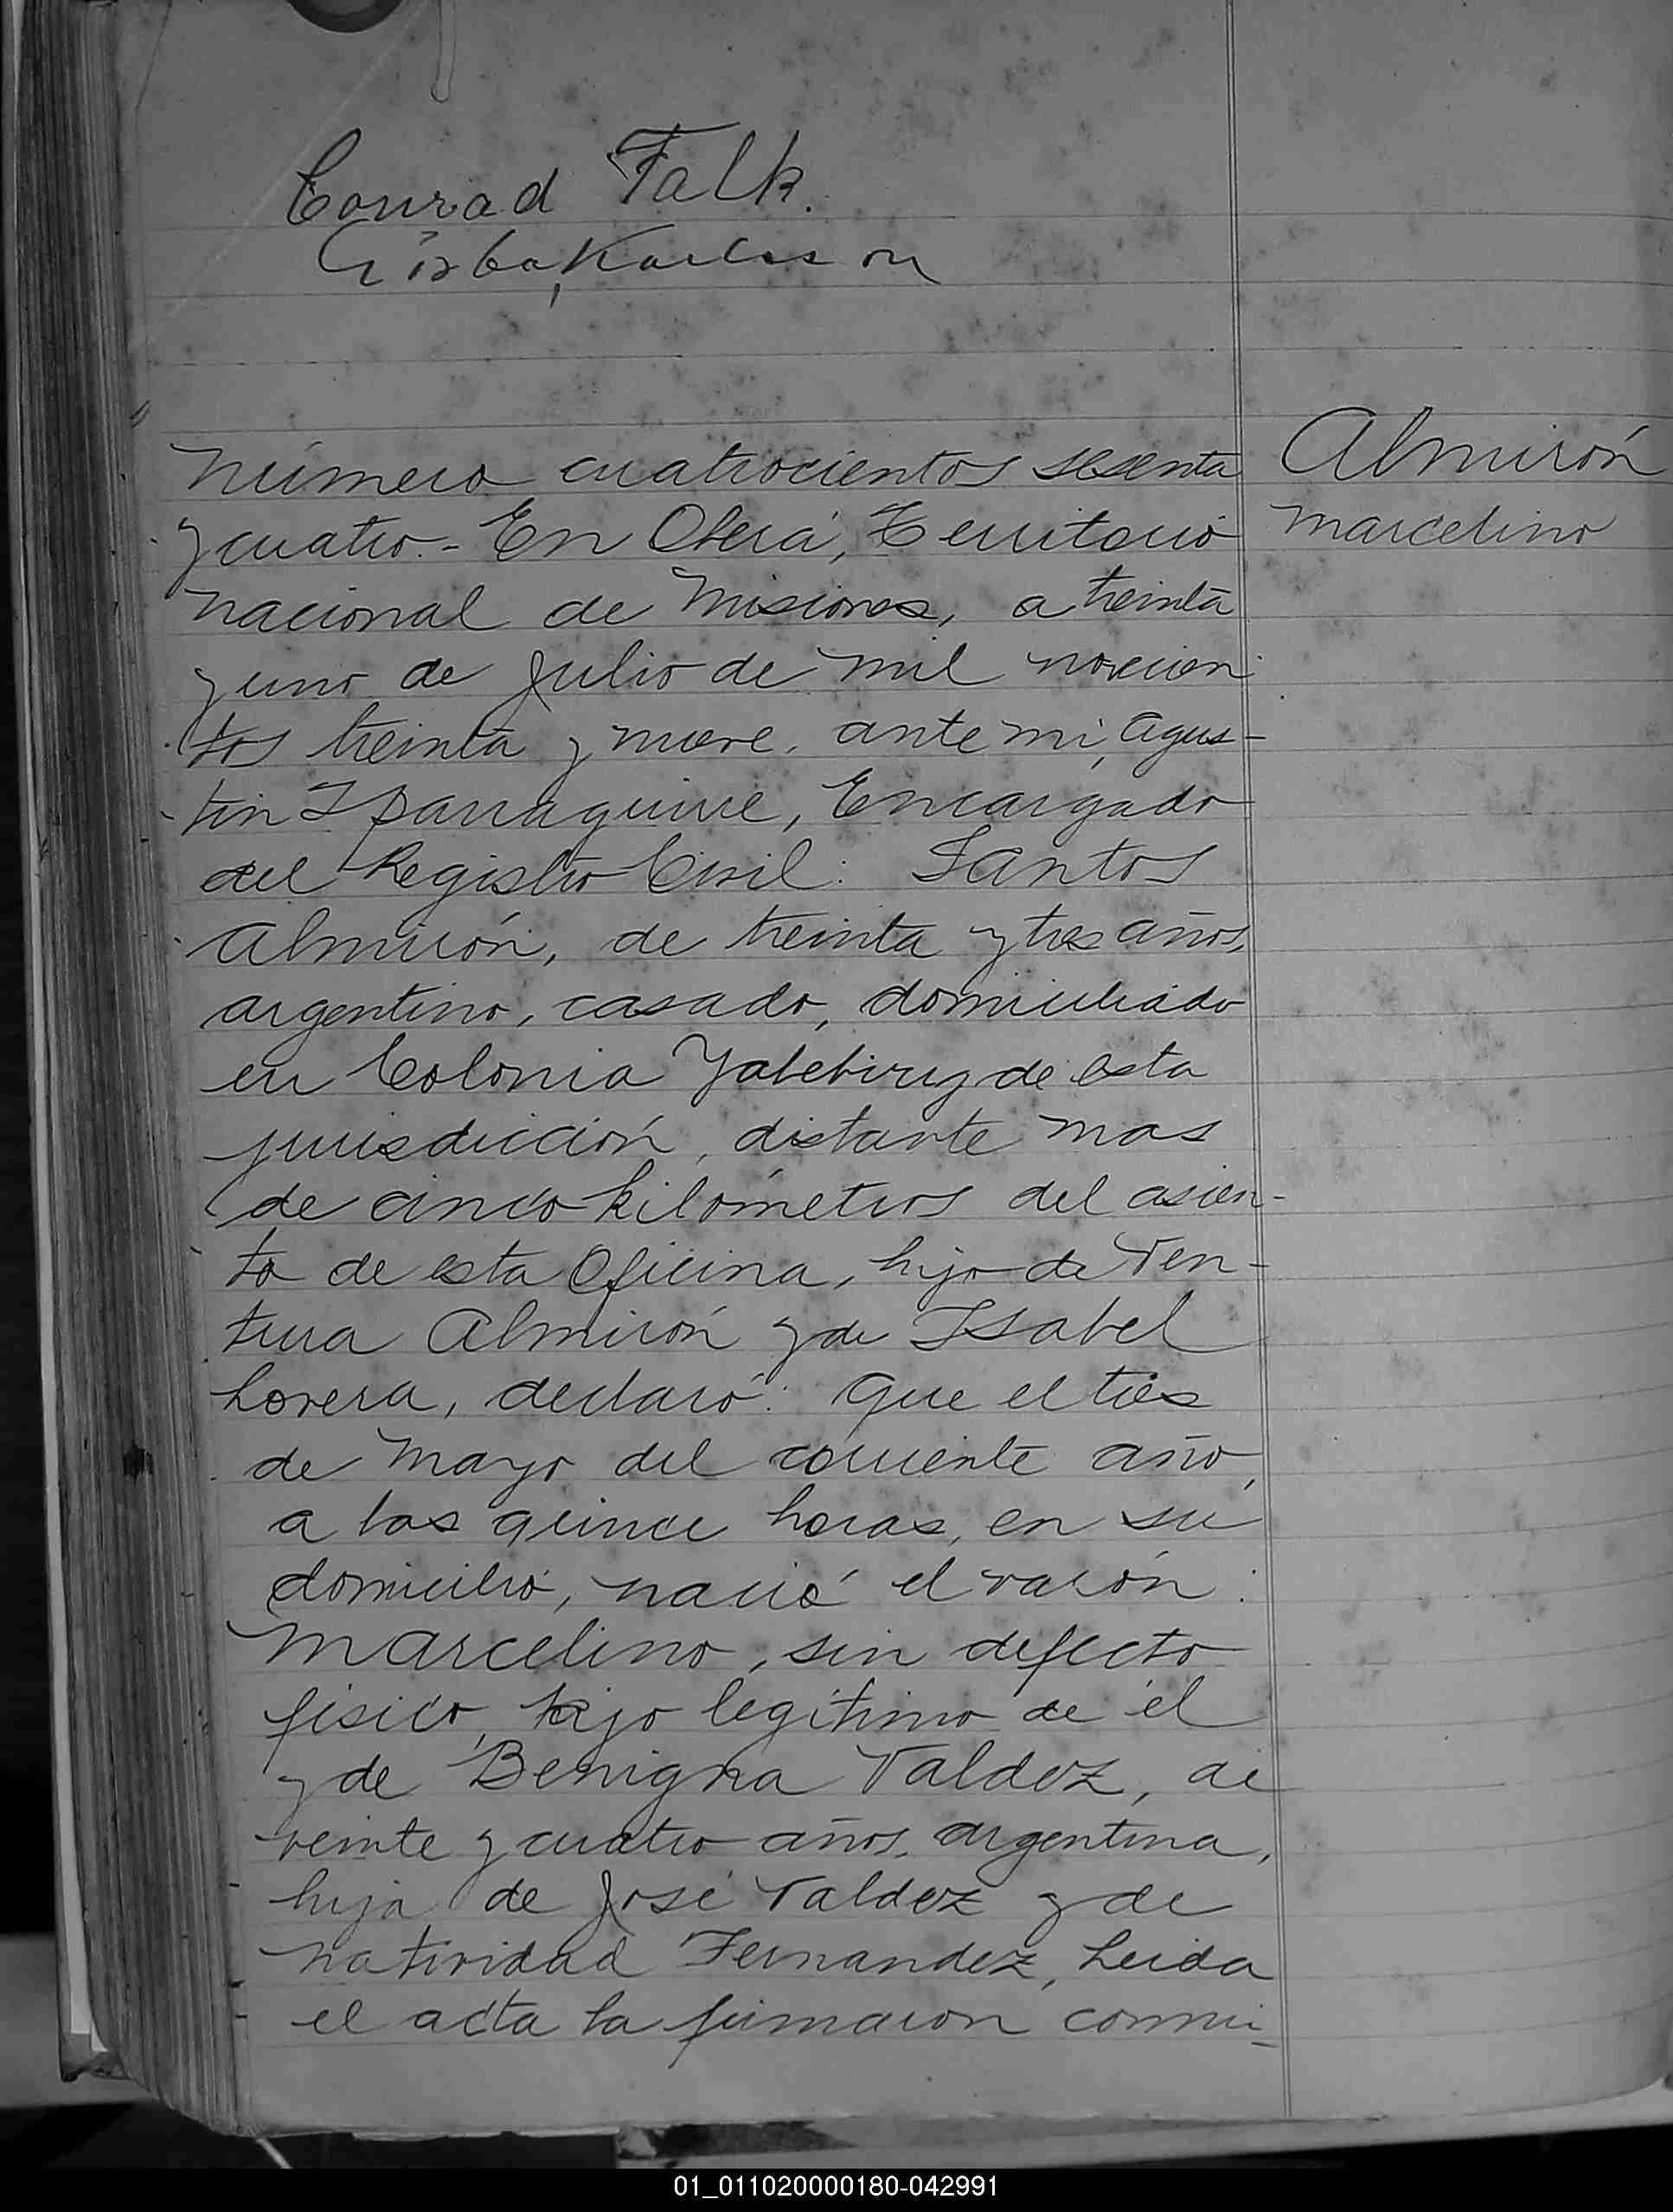 Conrad Falk.
Karlsson
Número cuatrocientos sesenta
y cuatro.- En Oberá, Territorio
Nacional de Misiones, a treinta
y uno de Julio de mil novecien-
tos treinta y nueve, ante mi, Agus-
tin Iparraguirre, Encargado
del Registro Civil: Santos
Almirón, de treinta y tres años,
argentino, casado, domiciliado
en Colonia Yabebiry de esta
jurisdicción, distante mas
de cinco kilómetros del asien-
to de esta Oficina, hijo de Ven-
tura Almirón y de Isabel
Lovera, declaró: Que el tres
de Mayo del corriente año,
a las quince horas, en su
domicilio, nació el varón:
Marcelino, sin defecto
físico, hijo legítimo de él
y de Benigna Valdez, de
veinte y cuatro años, argentina,
hija de José Valdez y de
Natividad Fernandez, Leida
el acta la firmaron conmi-
Almirón
Marcelino
01_011020000180-042991